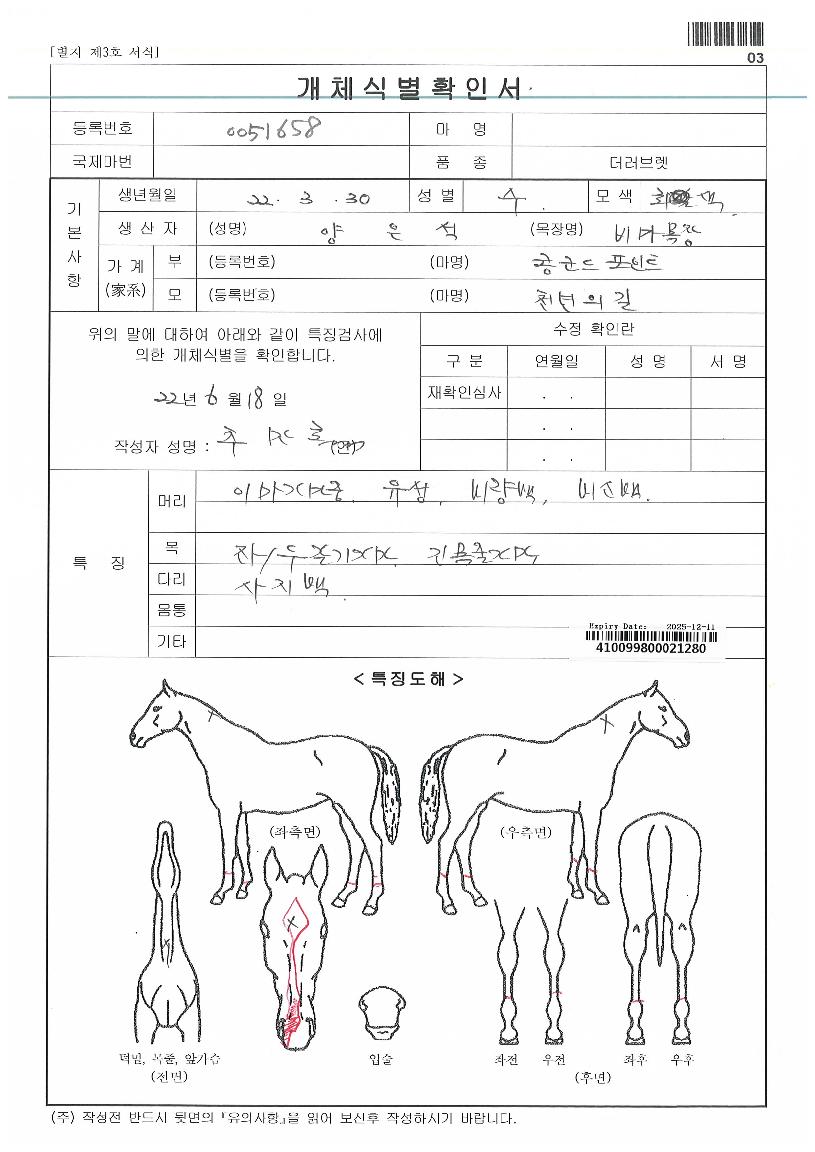 [별지 제3호 서식]
03
개체식별확인서
등록번호 0051658 마 명
국제마번 품 종 더러브렛
기본사항
생년월일 22. 3. 30 성별 수. 모색
생 산 자 (성명) 양 은 석 (목장명) 비가목장
가계(家系) 부 (등록번호) (마명) 콩코드 포인트
모 (등록번호) (마명) 천년의길
위의 말에 대하여 아래와 같이 특징검사에
의한 개체식별을 확인합니다.
22년 6월 18일
작성자 성명 : (인)
수정 확인란
구 분 연월일 성 명 서 명
재확인심사 . .
. .
. .
특 징
머리 이마가마중, 유성, 비량백, 비순백.
목
다리 사지백
몸통
기타
Expiry Date: 2025-12-11
410099800021280
< 특징도해 >
(좌측면) (우측면)
턱밑, 목줄, 앞가슴 입술 좌전 우전 좌후 우후
(전면) (후면)
(주) 작성전 반드시 뒷면의 『유의사항』을 읽어 보신후 작성하시기 바랍니다.